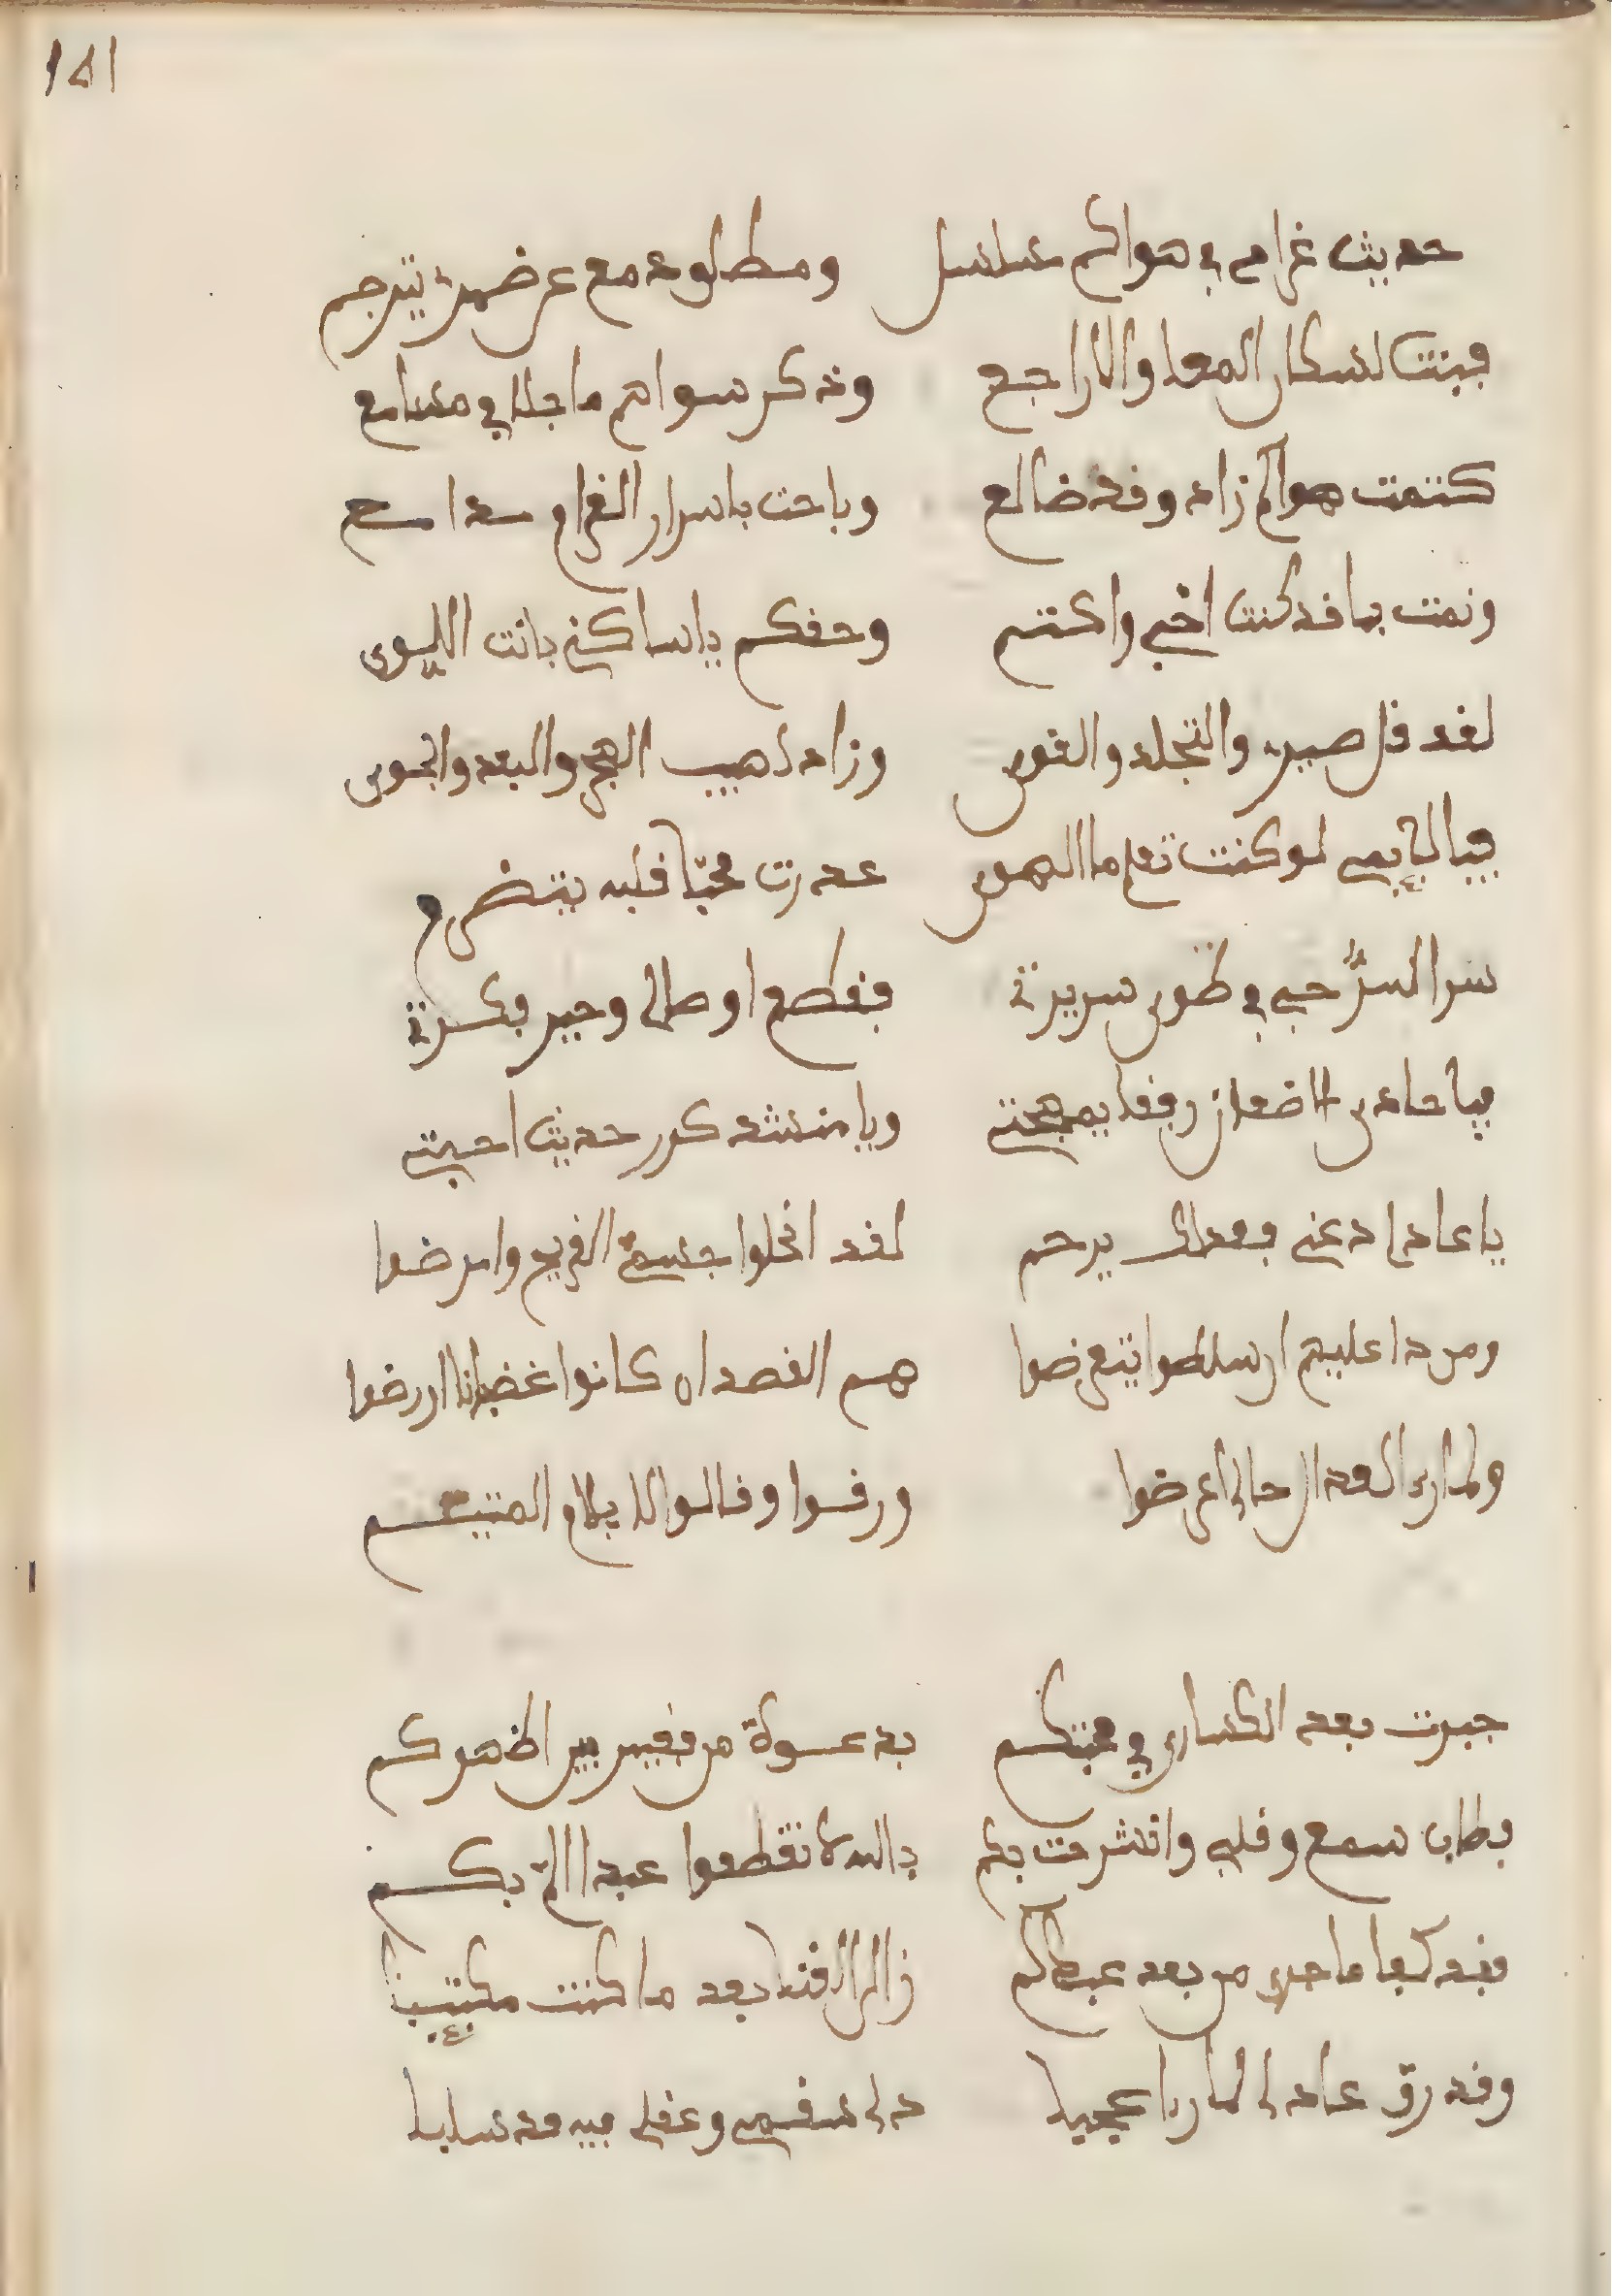 141
حديث غرامي في هواكم مسلسل ومطلوعه مع عن ضميري يترجم
فبنت لسكان المعا والاراجع وذكر سواهم ما حلا في مسامع
كتمت هواكم زاد وقد ضالع وباحت باسرار الغرام مدامع
ونمت بما قد كنت اخفي واكتم وحقكم يا ساكني بانت اللوى
لقد قل صبري والتجلد والقوى وزاد لهيب الهجر والبعد والجوى
فيا لايمي لو كنت تعلم ما الهوى عدرت محبا قلبه يتضرم
سرا السر حبي في طوى سريرتي فقطع اوصالي وحير فكرتي
فيا حادي الاضعان رفقا بمهجتي ويا منشد كرر حديث احبتي
يا عادلا دعني فعداك يرحم لقد انحلوا جسمي القريح وامرضوا
ومن دا عليهم ان سلطوا يتعرضوا هم القصد ان كانوا غضبانا او رضوا
ولما راى العدال حالي اعرضوا ورقوا وقالوا لا يلام المتيم
جبرت بعد انكساري في محبتكم بدعوة من فقير بين اظهركم
فطاب سمع وقلبي وانشرحت بكم بالله لا تقطعوا عبدا الم بكم
فقد كفا ما جرى من بعد عبدكم زال العنا بعد ما كنت مكتيبا
وقد رق عادلي لما را عجبا دلى سقمي وعقلي فيه قد سلبا